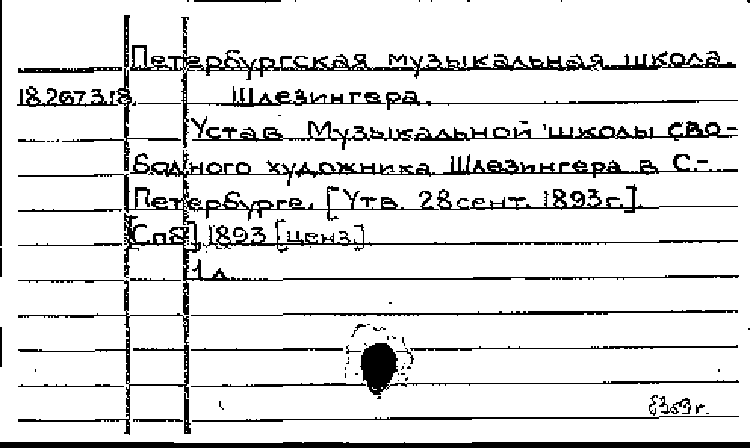 Петербургская музыкальная школа
18.267.3.18. Шлезингера.
Устав Музыкальной школы сво-
бодного художника Шлезингера в С.-
Петербурге. [Утв. 28 сент. 1893 г.]
[Спб], 1893 [ценз.]
1 л